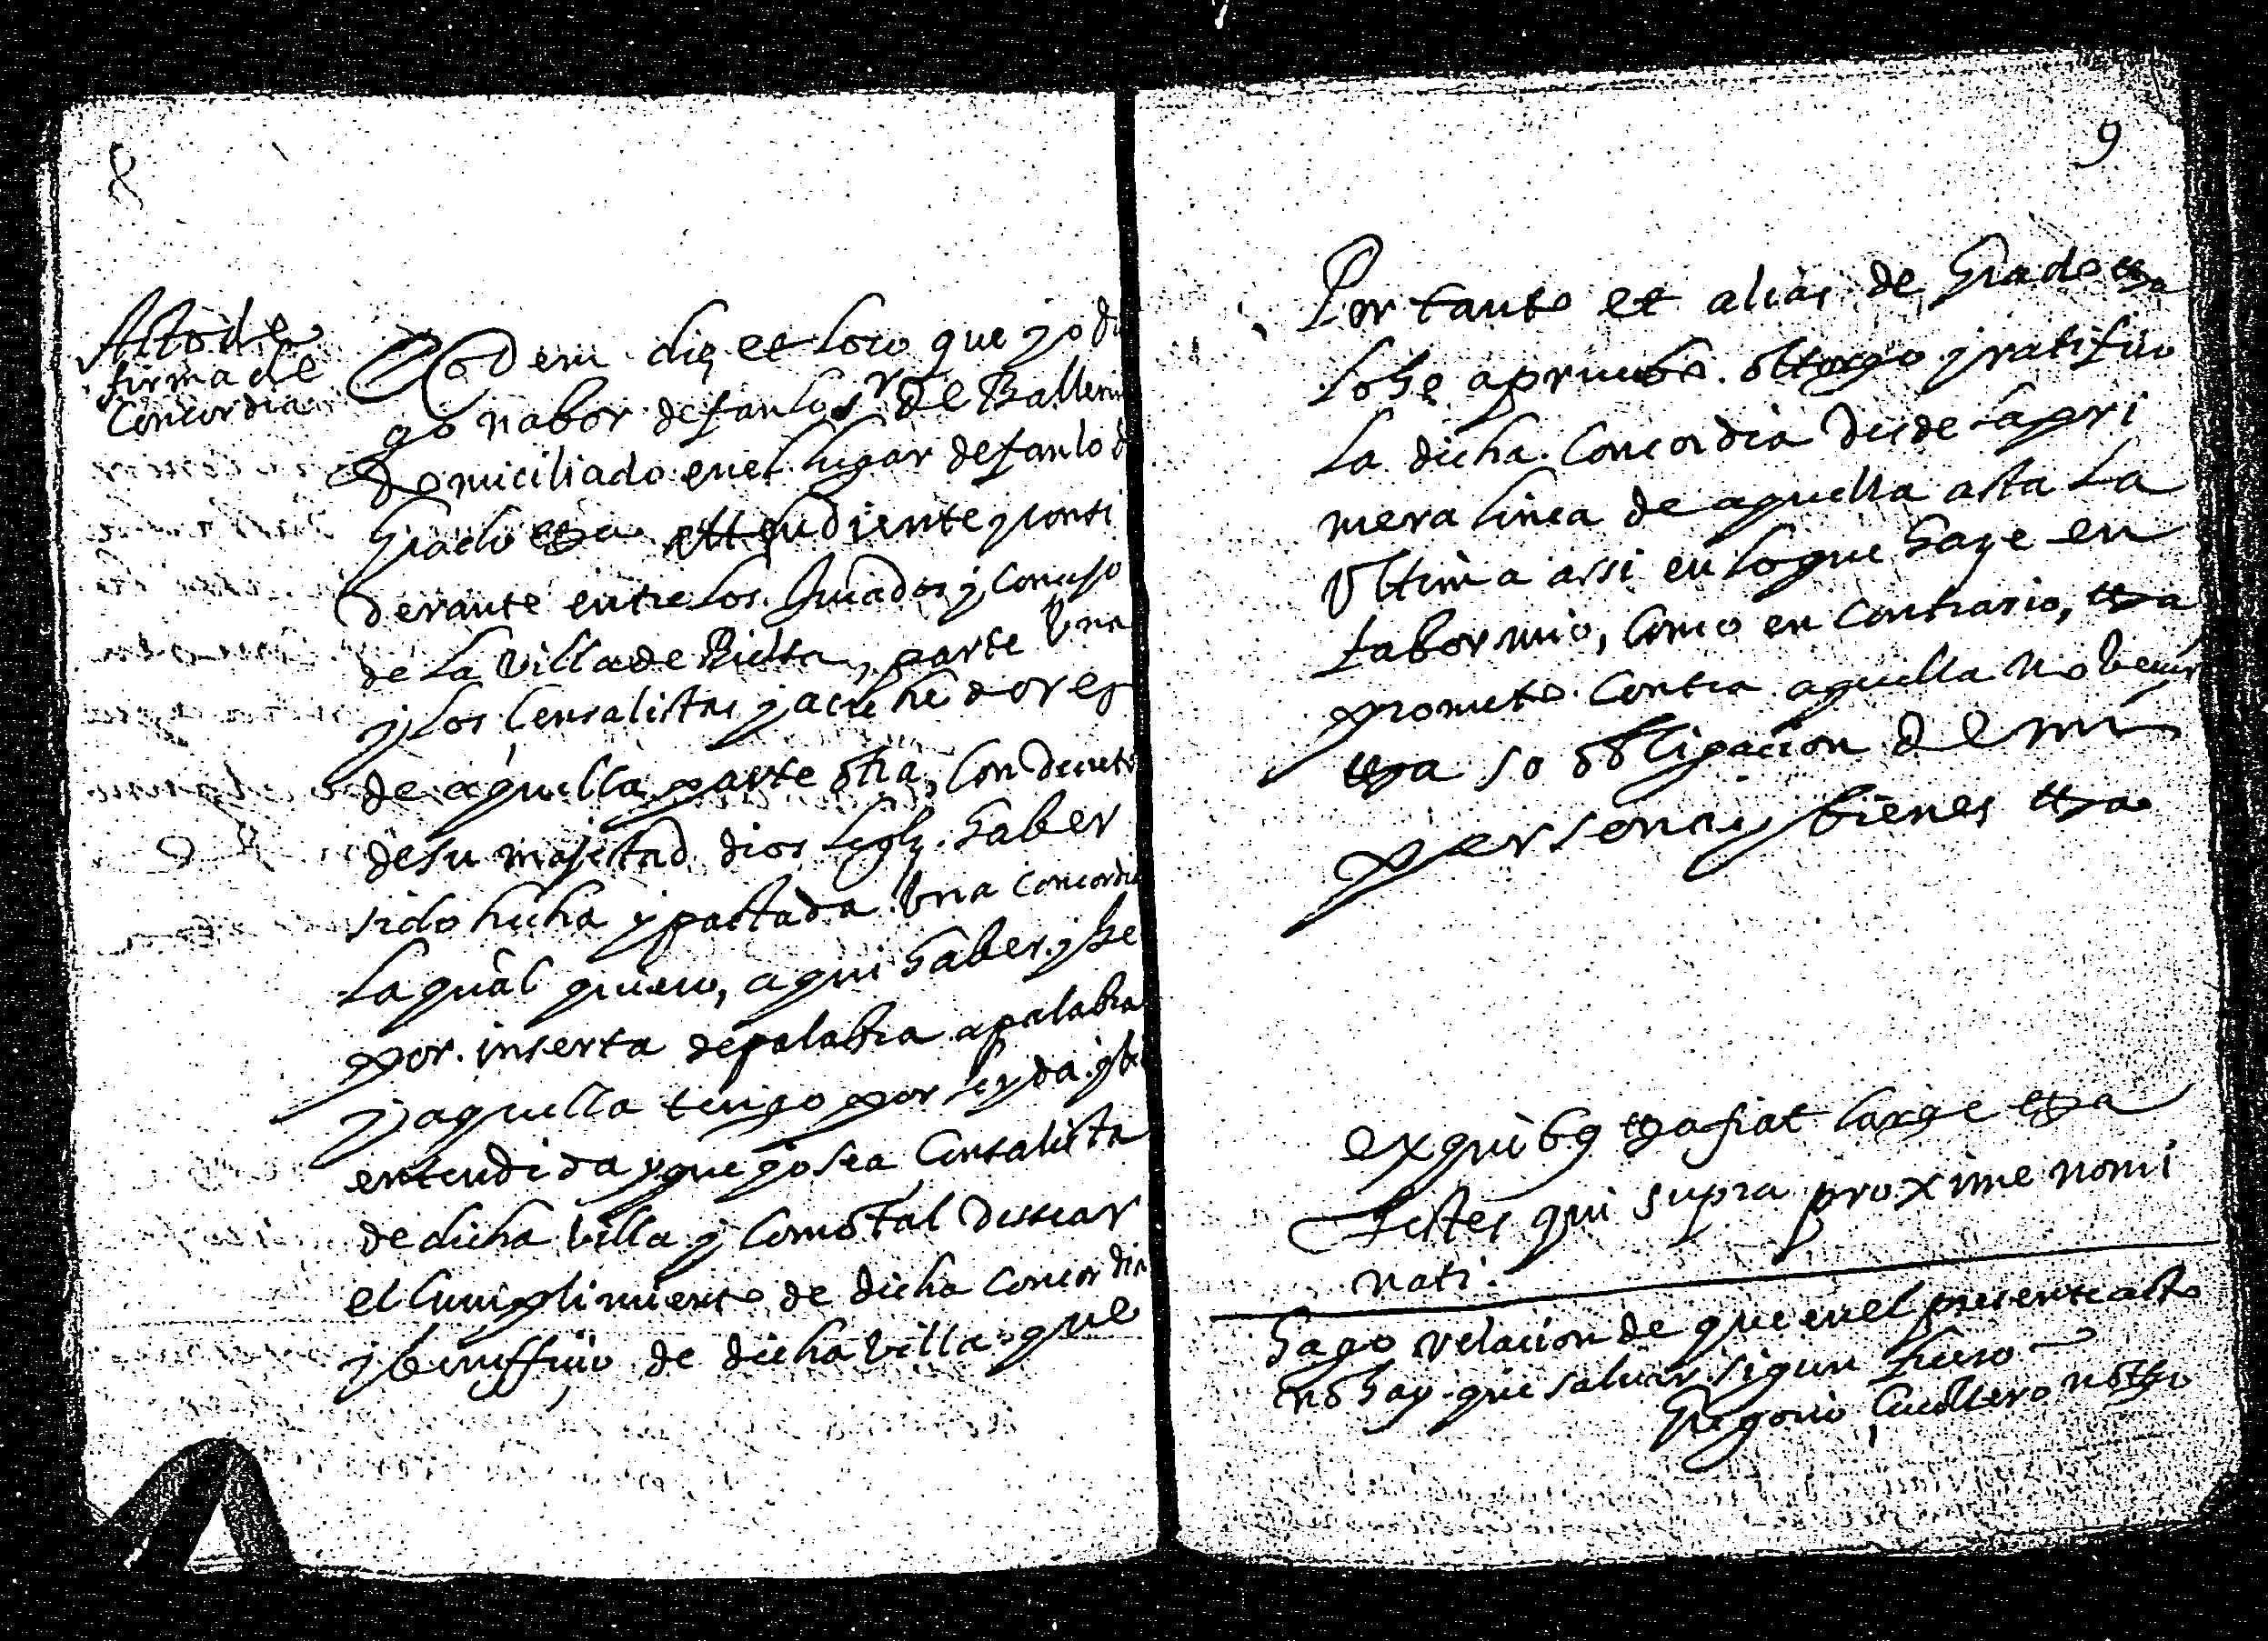 8
Acto de
firma de
Concordia
Eodem die et loco que yo Die
go nabor de fanlo s.r de Ballerin
Domiciliado en el lugar de fanlo d
Grado etta attendiente y consi
derante entre los Jurados y Concejo
de la villa de Bielsa, parte Una
y los Censalistas y acrehedores
de aquella parte otra, Con Decreto
de su majestad dios le gde. haber
sido hecha y pactada Una concordia
La qual quiero, aqui haber y he
por inserta de palabra a palabra
y aquella tengo por leyda y bi
entendida y que yo sea Censalista
de dicha Villa y Como tal dessear
el Cumplimiento de dicha Concordia
y beneffiçio de dicha Villa que
9
Por tanto et alias de Grado etta
Lohe apruebo. ottorgo y ratifico
La dicha Concordia desde la pri
mera linea de aquella asta La
Ultima assi en lo que haze en
fabor mio, Como en Contrario, etta
prometo Contra aquella no benir
etta so obligacion de mi
persona y bienes etta
ex quibus etta fiat large etta
Testes qui supra proxime nomi
nati.
hago relacion de que en el presente acto
no hay que salvar segun fuero
Gregorio notto